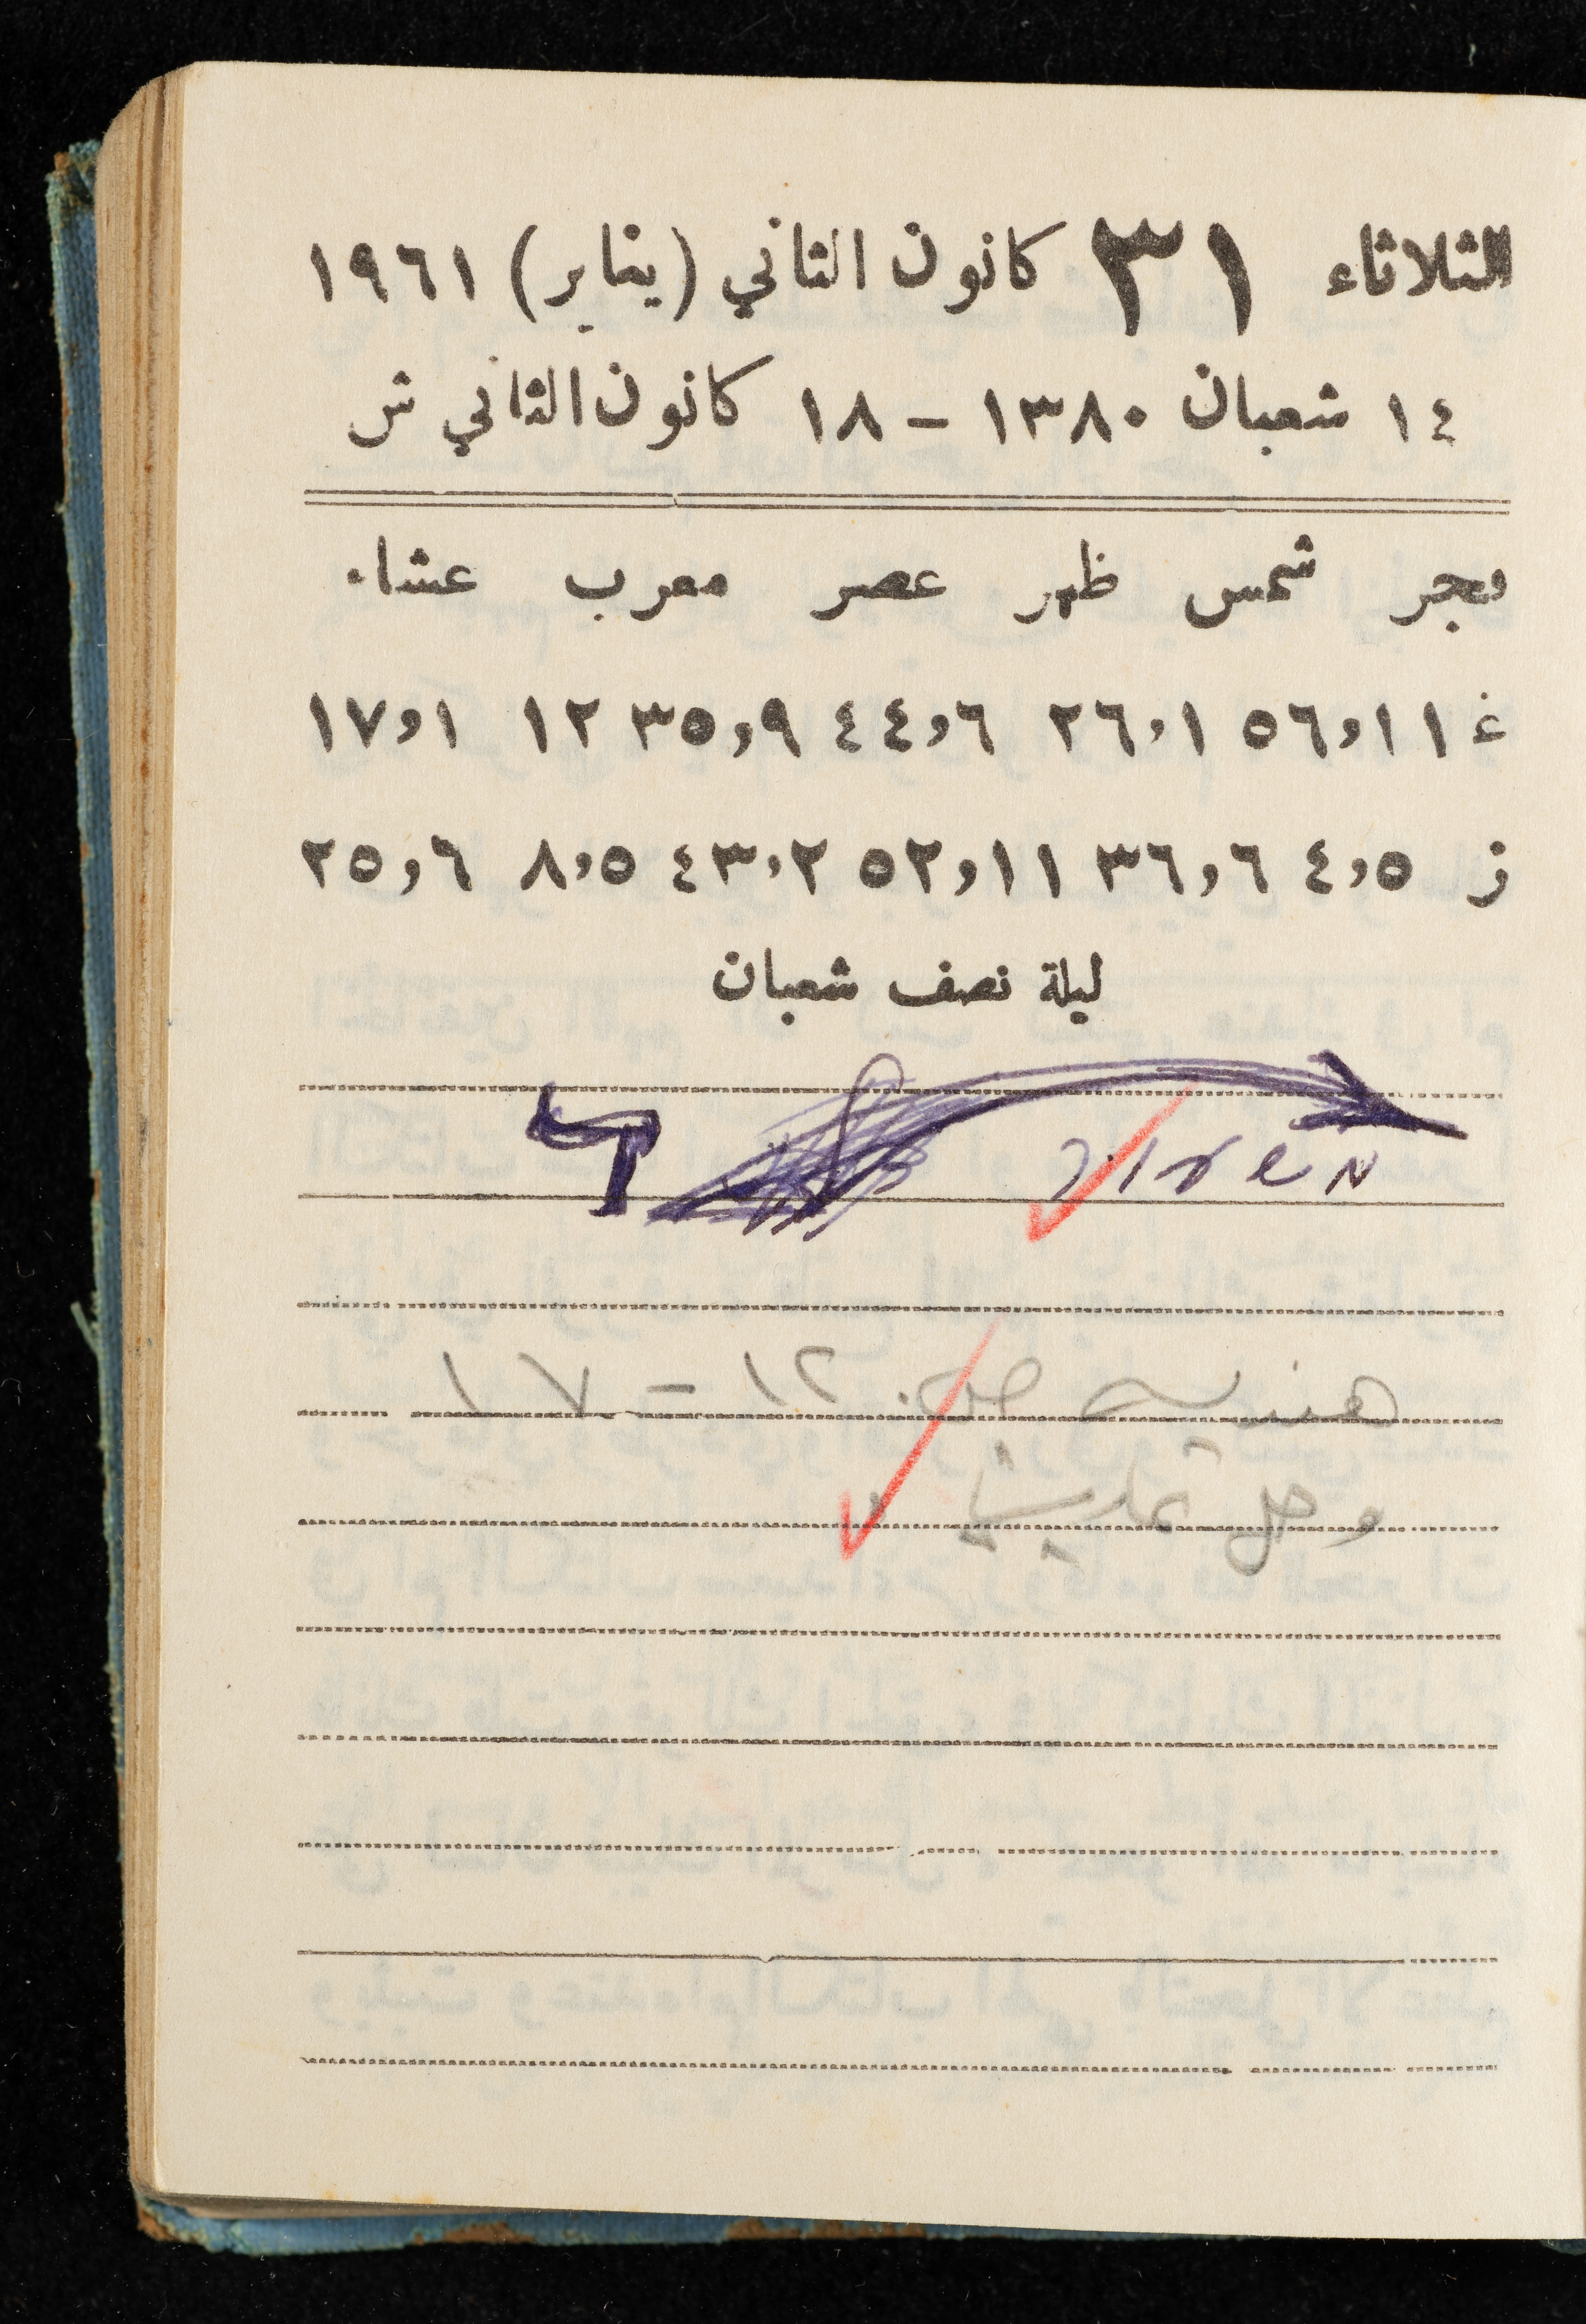 الثلاثاء ٣١ كانون الثاني (يناير) ١٩٦١
١٤ شعبان ١٣٨٠ – ١٨ كانون الثاني ش
فجر شمس ظهر عصر مغرب عشاء
غ ١١,٥٦ ١,٢٦ ٦,٤٤ ٩,٣٥ ١٢ ١,١٧
ز ٥,٤ ٦,٣٦ ١١,٥٢ ٢,٤٣ ٥,٨ ٦,٢٥
ليلة نصف شعبان
هندسة ١٢ – ١٧
وحل تمارين